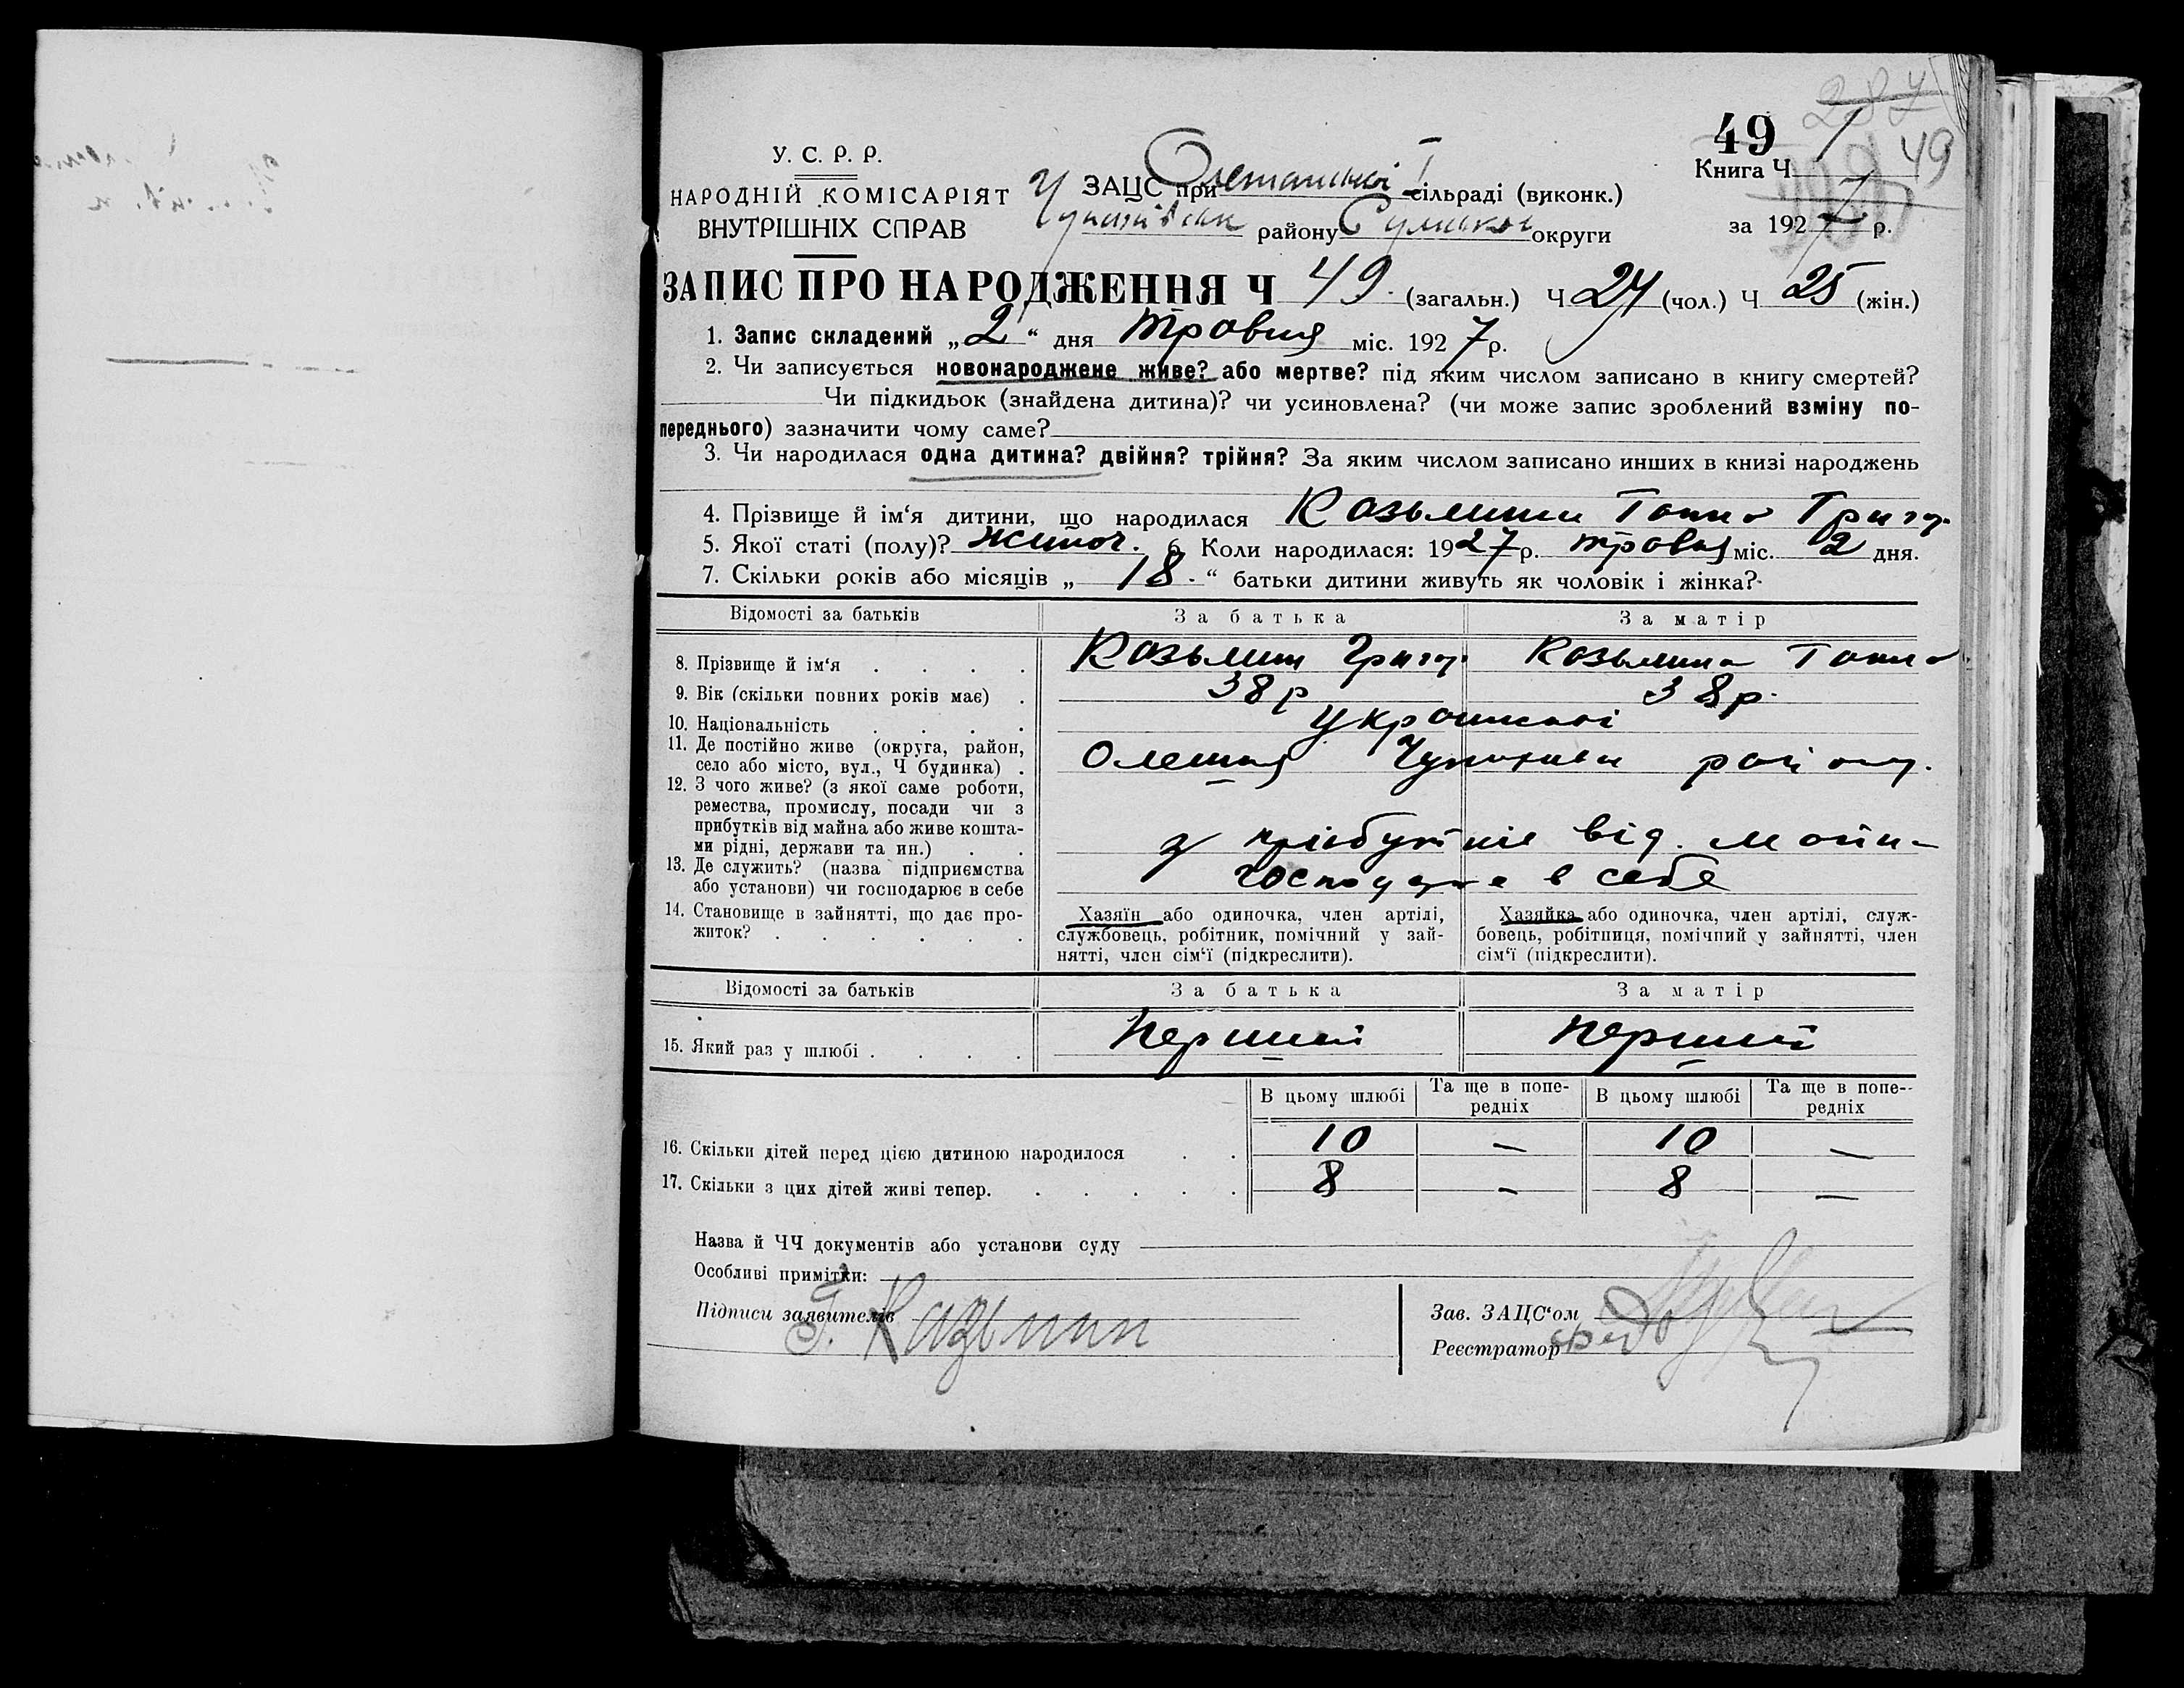 287
49 1
49
У. С. Р. Р.
НАРОДНІЙ КОМІСАРІЯТ
ВНУТРІШНІХ СПРАВ
ЗАЦС при Олешанській I сільраді (виконк.)
району Сумської округи
Книга Ч
за 1927 р.
ЗАПИС ПРО НАРОДЖЕННЯ Ч 49. (загальн.) Ч 24 (чол.) Ч 25 (жін.)
1. Запис складений „2“ дня травня міс. 1927 р.
2. Чи записується новонароджене живе? або мертве? під яким числом записано в книгу смертей?
Чи підкидьок (знайдена дитина)? чи усиновлена? (чи може запис зроблений взміну по-
переднього) зазначити чому саме?
3. Чи народилася одна дитина? двійня? трійня? За яким числом записано инших в книзі народжень
4. Прізвище й ім‘я дитини, що народилася Козьмини Ганна Григор.
5. Якої статі (полу)? жиноч. 6 Коли народилася: 1927 р. травня міс. 2 дня.
7. Скільки років або місяців „18.“ батьки дитини живуть як чоловік і жінка?
Відомості за батьків За батька За матір
8. Прізвище й ім‘я . . . . Козьмин Григор Козьмина Ганна
9. Вік (скільки повних років має) . 38 р 38 р.
10. Національність . . . . українські
11. Де постійно живе (округа, район,
село або місто, вул., Ч будинка) . Олешня район.
12. З чого живе? (з якої саме роботи,
ремества, промислу, посади чи з
прибутків від майна або живе кошта-
ми рідні, держави та ин.) . . з прибутків від. майн-
13. Де служить? (назва підприємства
або установи) чи господарює в себе господарює в себе
14. Становище в зайнятті, що дає про-
житок? . . . . . .
Хазяїн або одиночка, член артілі,
службовець, робітник, помічний у зай-
нятті, член сім‘ї (підкреслити).
Хазяйка або одиночка, член артілі, служ-
бовець, робітниця, помічний у зайнятті, член
сім‘ї (підкреслити).
Відомості за батьків За батька За матір
15. Який раз у шлюбі . . . . Перший перший
В цьому шлюбі Та ще в попе-
редніх В цьому шлюбі Та ще в попе-
редніх
16. Скільки дітей перед цією дитиною народилося . . 10 — 10 —
17. Скільки з цих дітей живі тепер. . . . . . 8 — 8 —
Назва й ЧЧ документів або установи суду
Особливі примітки:
Підписи заявителів Г. Казьмин
Зав. ЗАЦС‘ом
Реєстратор